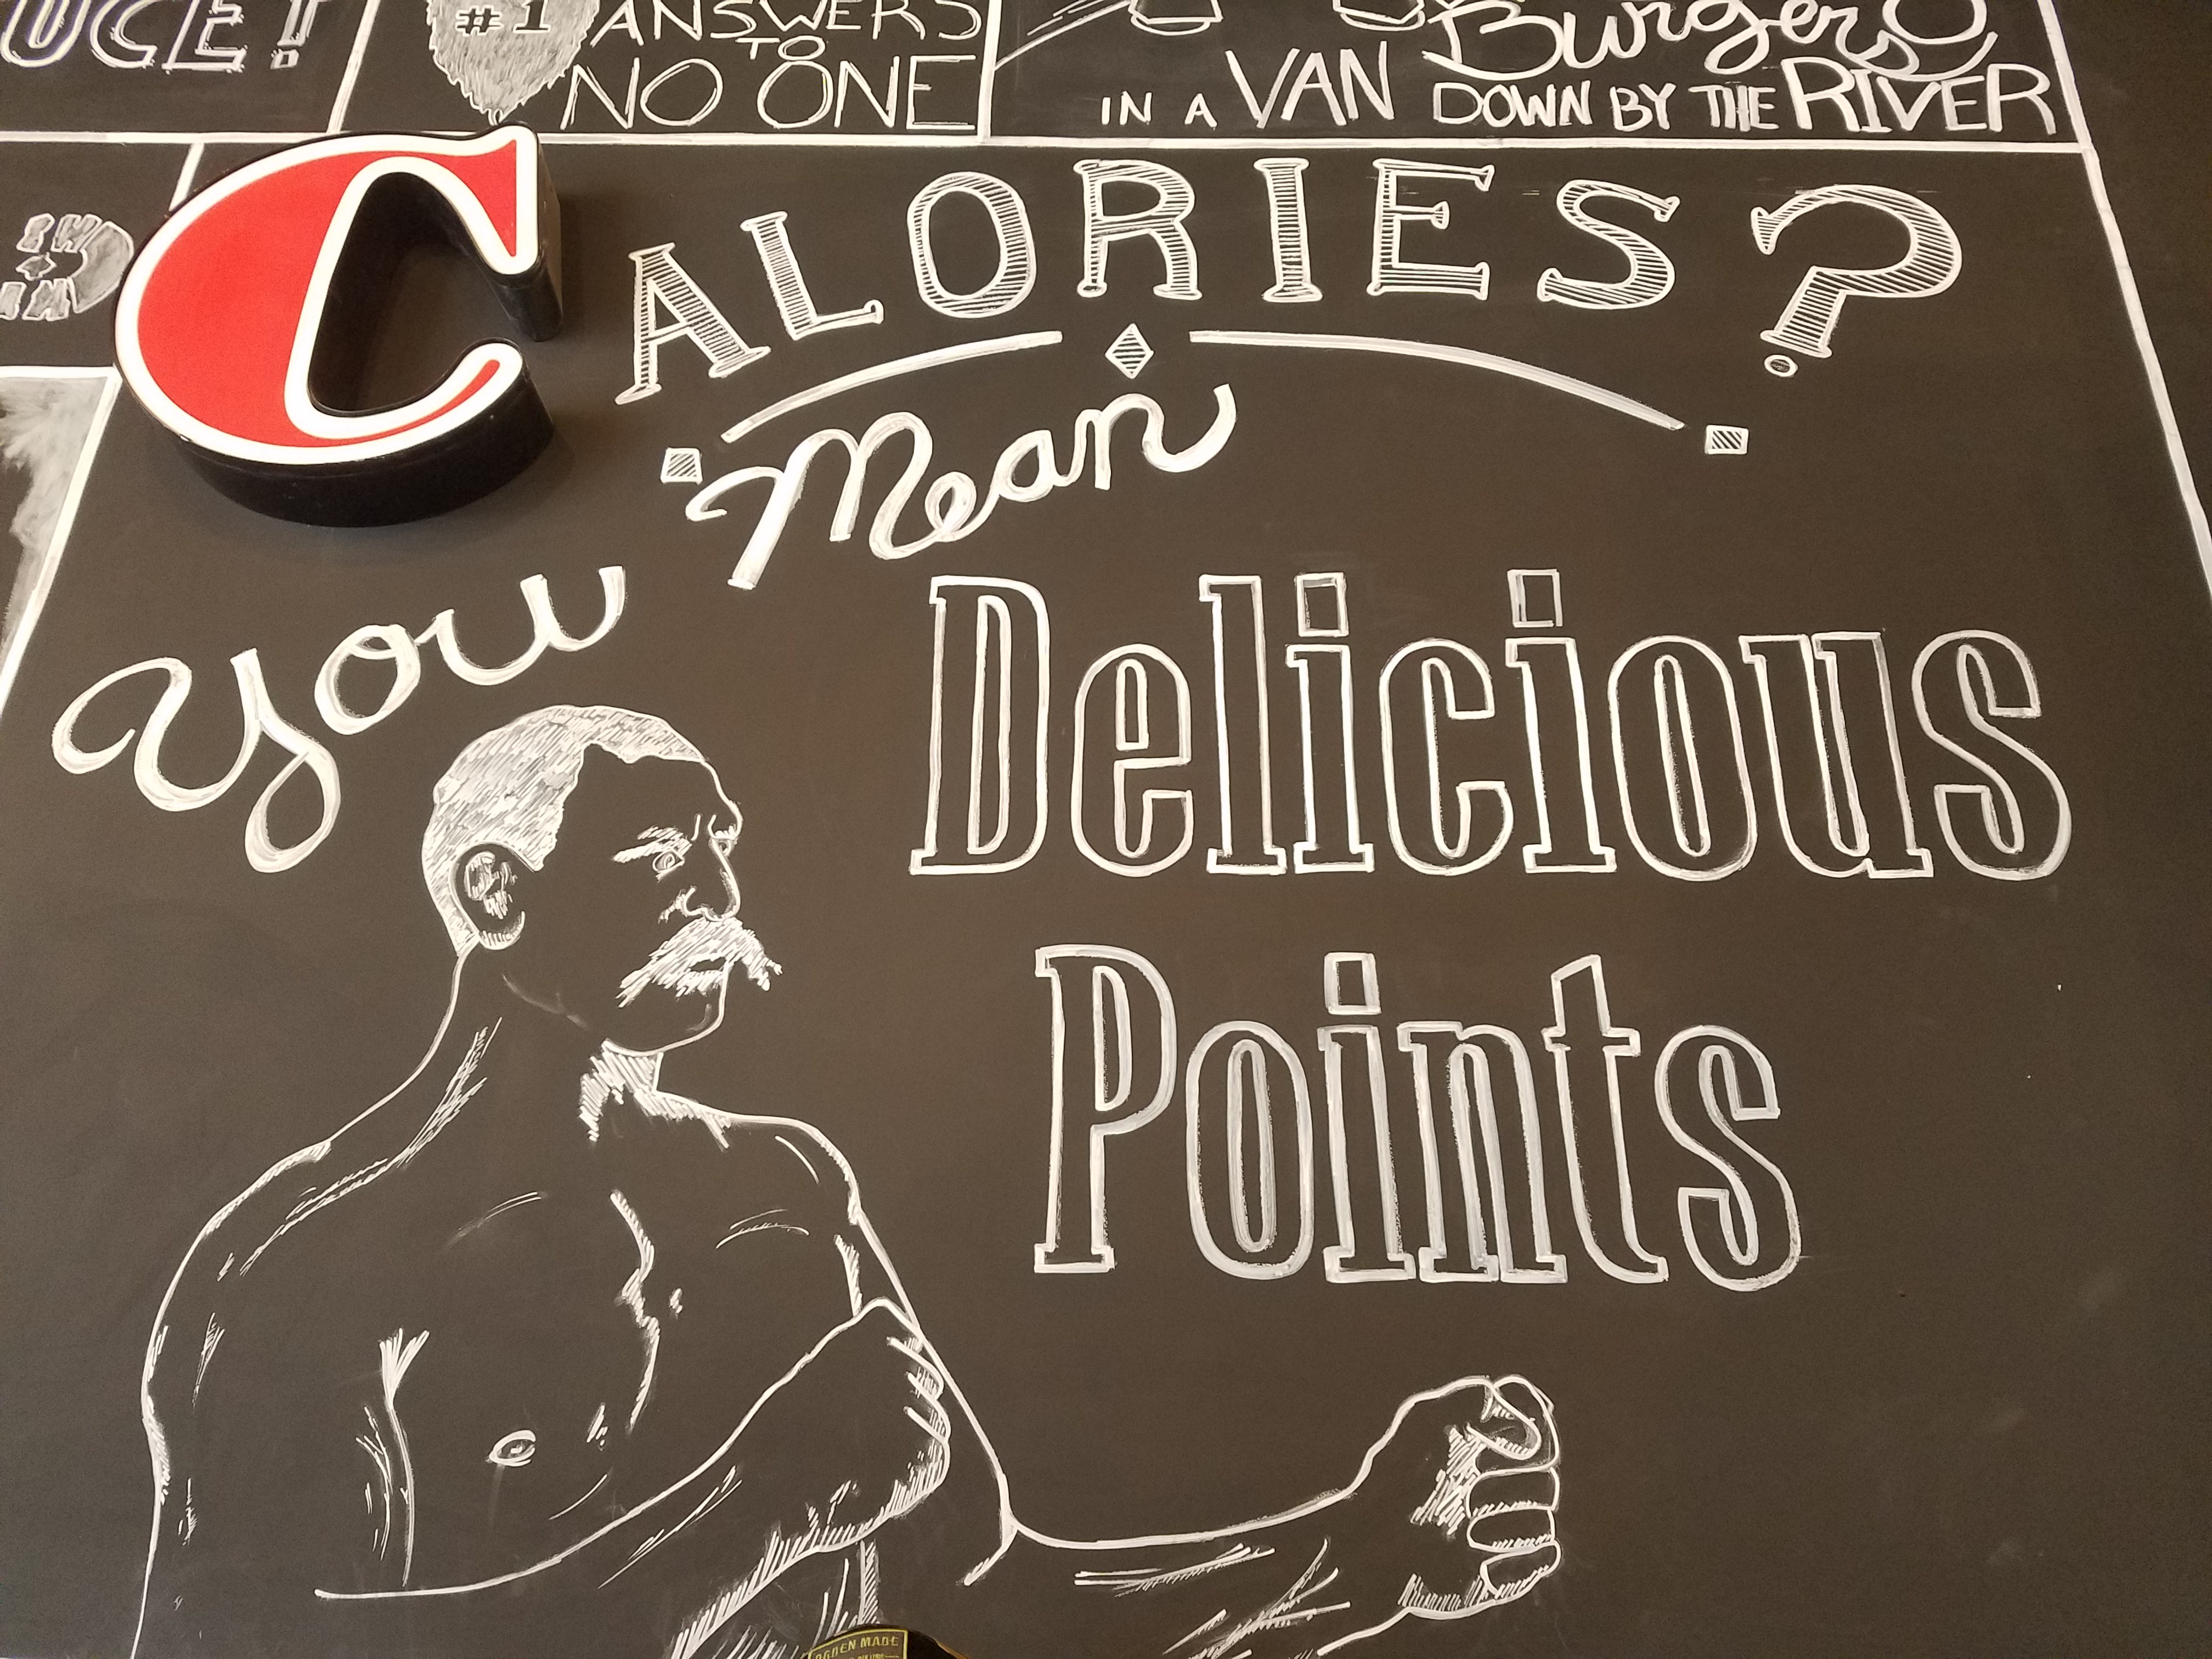 UCE!
#1 ANSWERS
TO
NO ONE
Burgers
IN A VAN DOWN BY THE RIVER
CALORIES?
You Mean
Delicious
Points
OGDEN MADE